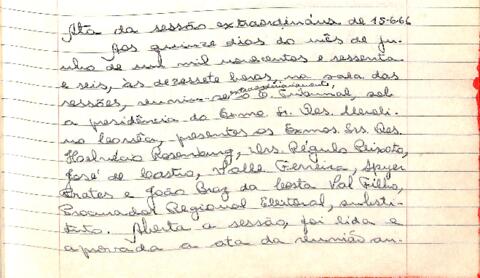 Ata da sessão extraordinária de 15-6-66
Aos quinze dias do mês de ju-
nho de um mil novecentos e sessenta
e seis, às dezessete horas, na sala das
sessões, reuniu-se extraordinariamente, o E. Tribunal, sob
a presidência do Exmo. Sr. Des. Meroli-
no Corrêa, presentes os Exmos. Srs. Des.
Rosenburg, Drs. Régulo Peixoto,
José de Castro, Valle Ferreira, Spyer
Prates e João Braz da Costa Val Filho,
Procurador Regional Eleitoral, substi-
tuto. Aberta a sessão, foi lida e
aprovada a ata da reunião an-